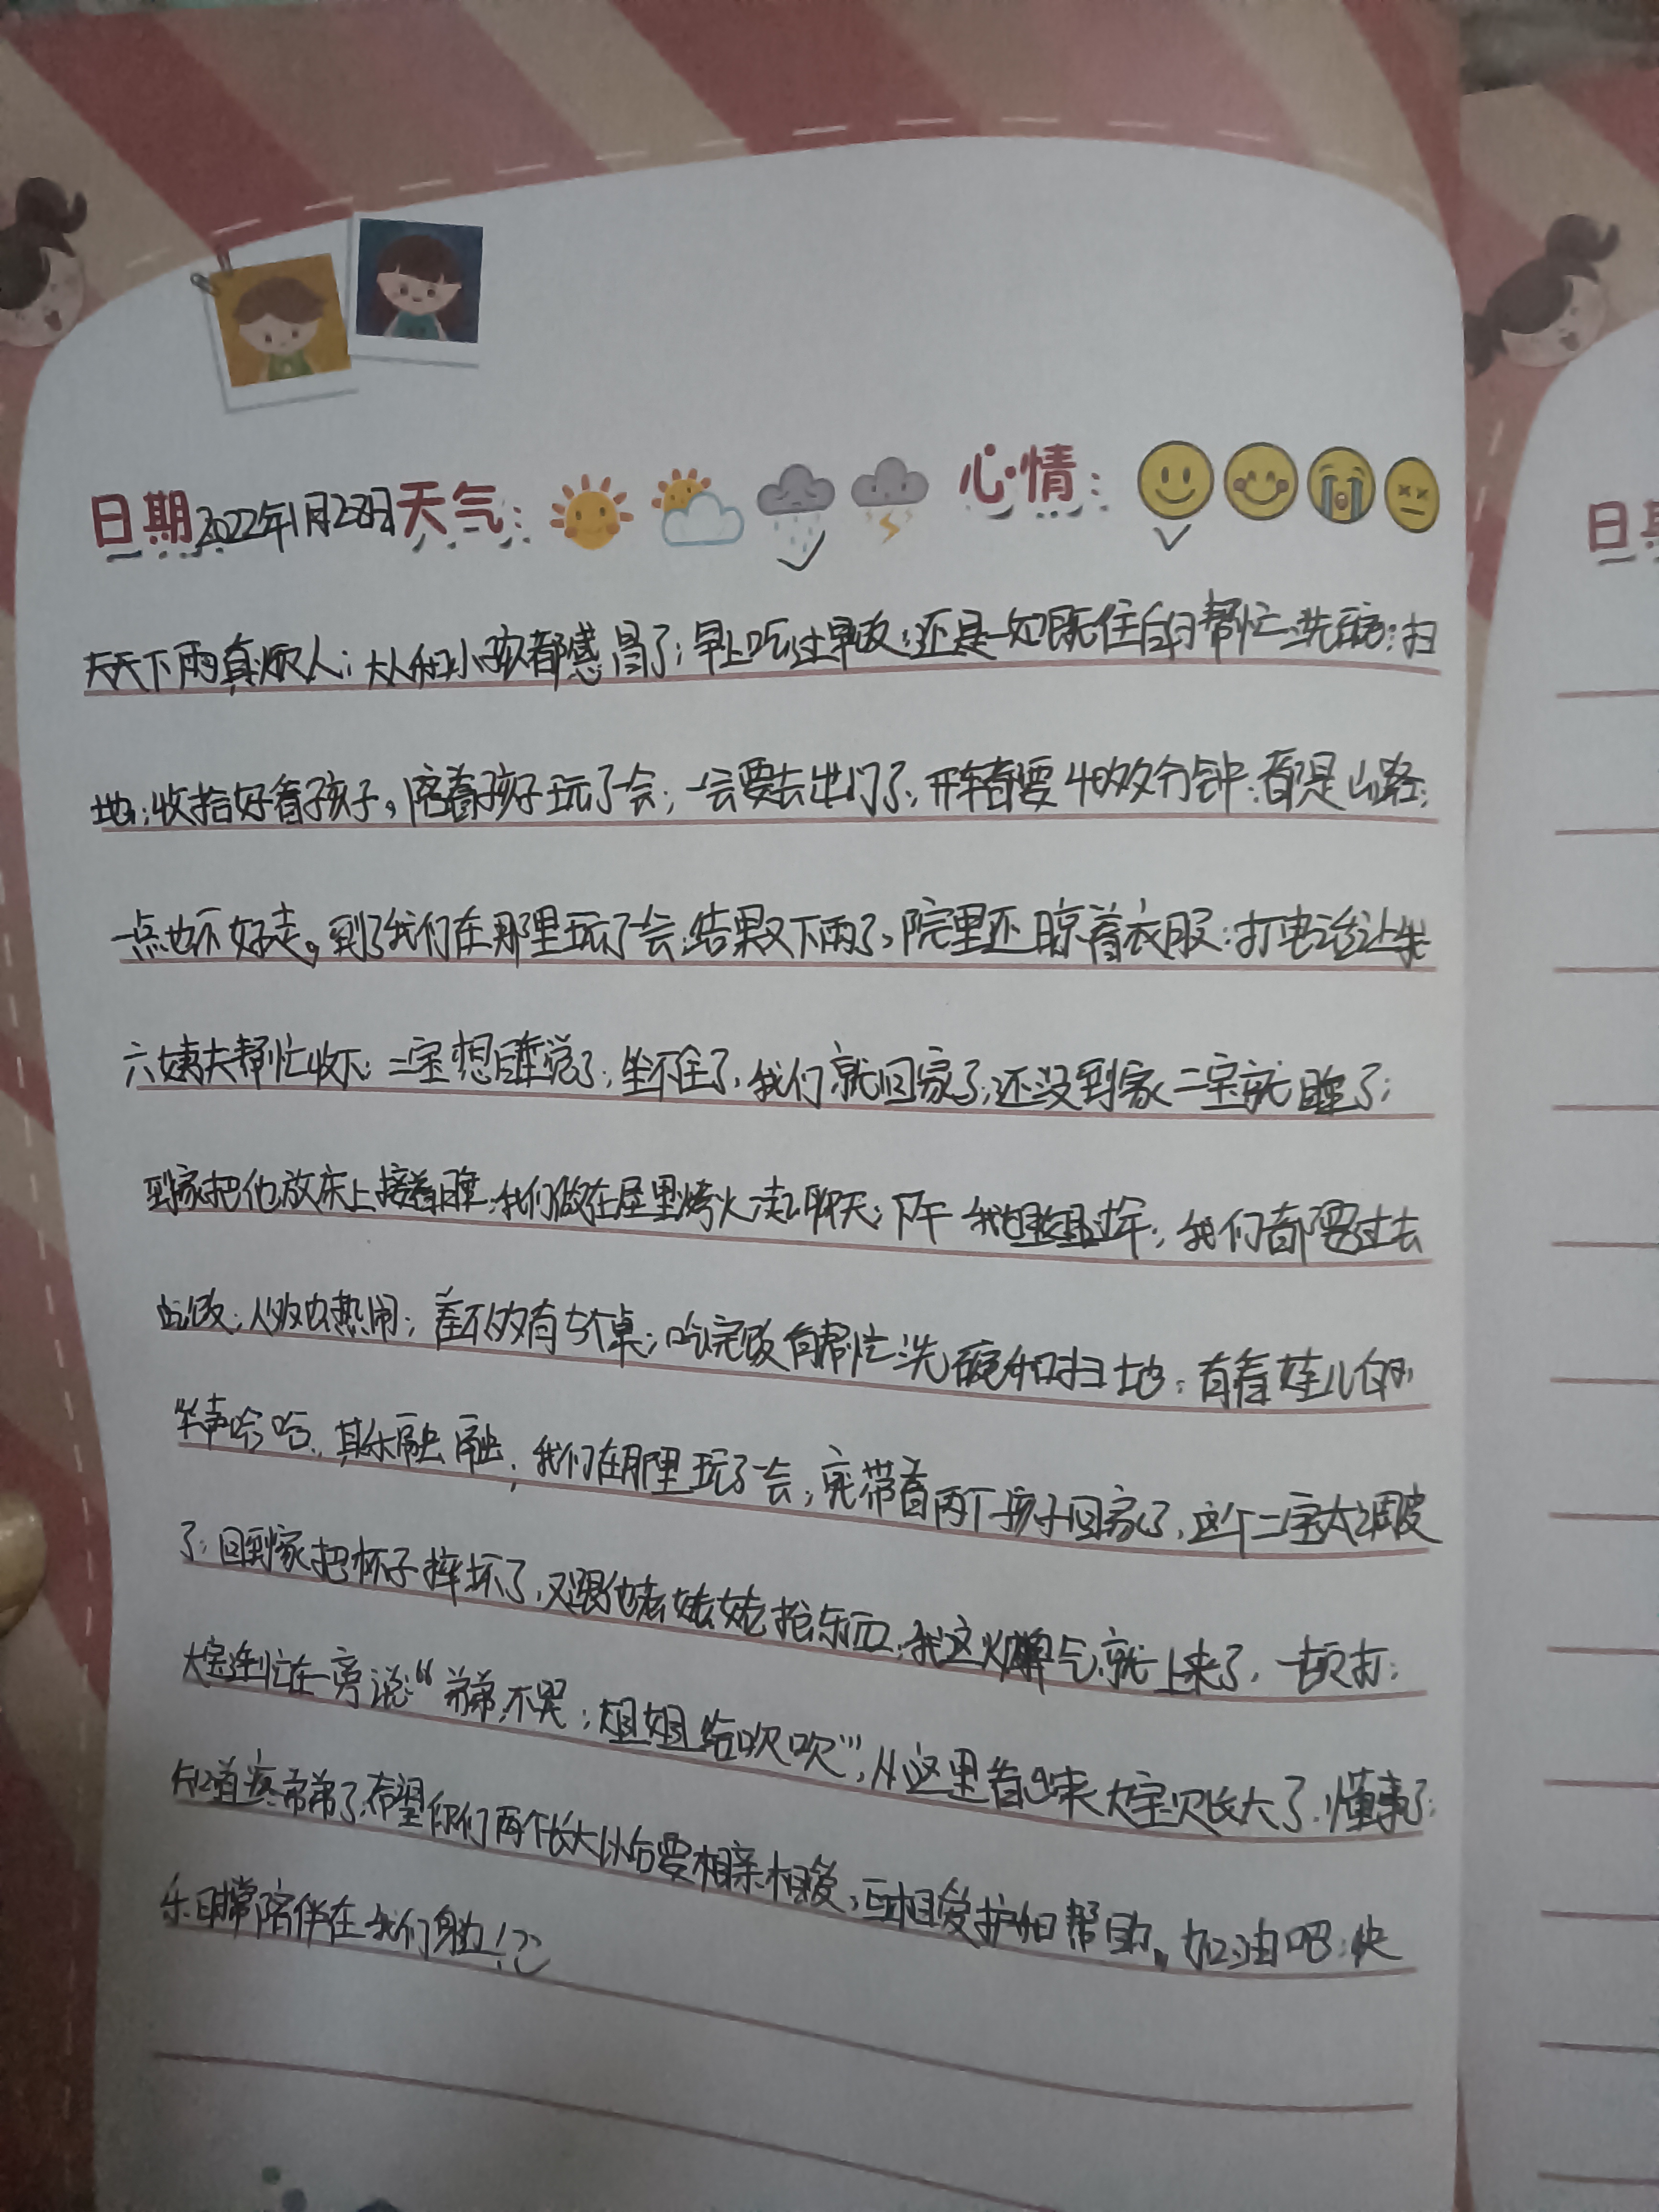 日期2022年1月28日天气: 心情:
天天下雨真烦人;大人和小孩都感冒了;早上吃过早饭;还是一如既往的帮忙洗碗;扫
地;收拾好看孩子。陪着孩子玩了会;一会要去出门了,开车都要40多分钟;都是山路;
一点也不好走。到了我们在那里玩了会,结果又下雨了,院里还晾着衣服;打电话让我
六姨夫帮忙收下;二宝想睡觉了;坐不住了,我们就回家了;还没到家二宝就睡了;
到家把他放床上接着睡,我们做在屋里烤火聊天;下午我姐姐过年;我们都要过去
吃饭;人多热闹;差不多有5个桌;吃完饭有帮忙洗碗和扫地;有看娃儿的
笑声哈哈,其乐融融;我们在那里玩了会;就带着两个孩子回家了,这个二宝太调皮
了;回到家把杯子摔坏了,又跟他老姑姑抢东西,我这火脾气就上来了,一顿打;
大宝连忙在一旁说:“弟弟,不哭;姐姐给吹吹”,从这里看出来大宝又长大了,懂事了;
知道疼弟弟了,希望你们两个长大以后要相亲相爱,互相爱护和帮助。加油吧;快
乐日常陪伴在我们身边!
日期